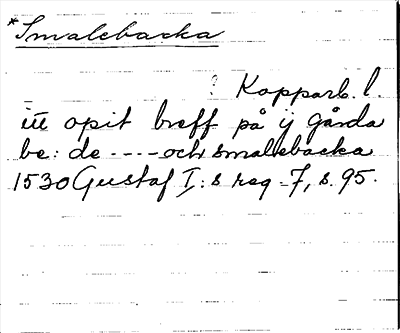 *Smalebacka
? Kopparb. l.
itt opit breff på ij gårda
be: de ---- och smalebacka
1530 Gustaf I:s reg. 7, s. 95.